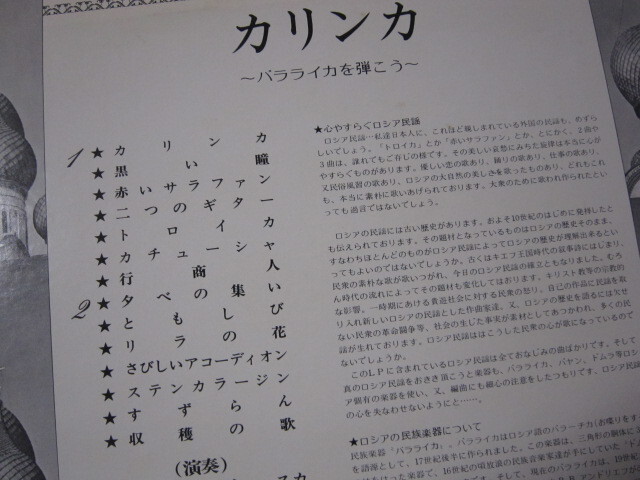 カリンカ
～バラライカを弾こう～
1
★カリンカ
★黒い瞳
★赤いサラファン
★二つのギター
★トロイカ
★カチューシャ
★行商人
2
★夕べの集い
★ともしび
★リラの花
★さびしいアコーディオン
★ステンカラージン
★すずらん
★収穫の歌
(演奏)
★心やすらぐロシア民謡
ロシア民謡―私達日本人に、これほど親しまれている外国の民謡も、めずら
しいでしょう。「トロイカ」とか「赤いサラファン」とか、とにかく、2曲や
3曲は、誰れでもご存じの様です。その美しい哀愁にみちた旋律は本当に心が
やすらぐものがあります。優しい恋の歌あり、踊りの歌あり、仕事の歌あり、
又民俗風習の歌あり、ロシアの大自然の美しさを歌ったものあり、どれもこれ
も、本当に素朴に歌いあげられております。大衆のために歌われ作られたとい
っても過言ではないでしょう。
ロシアの民謡には古い歴史があります。およそ10世紀のはじめに発特したと
も伝えられております。その題材となっているものはロシアの歴史そのまま、
すなわちほとんどのものがロシア民謡によってロシアの歴史が理解出来るとい
ってもよいのではないでしょうか。古くはキエフ王国時代の叙事詩にはじまり、
民衆の素朴な歌が歌いつがれ、今日のロシア民謡の確立ともなりました。むろ
ん時代の流れによってその題材も変化してはおります。キリスト教等の宗教的
な影響。一時期における貴族社会に対する民衆の怒り。自己の作品に民謡を取
り入れ新しいロシアの民謡とした作曲家達。又、ロシアの歴史を語るにはかかせ
ない民衆の革命闘争等、社会の生じた事実が素材としてあつかわれ、多くの民
謡が生れております。ロシア民謡はこうした民衆の心が歌になっているのでは
ないでしょうか。
このLPに含まれているロシア民謡は全ておなじみの曲ばかりです。そして
真のロシア民謡をおきき頂こうと楽器も、バラライカ、バヤン、ドムラ等ロシ
ア個有の楽器を使い、又、編曲にも細心の注意をしたつもりです。ロシア民謡
の心を失なわせないようにと……。
★ロシアの民族楽器について
民族楽器「バラライカ」。バラライカはロシア語のバラーチカ(お喋りをす
を語源として、17世紀後半に作られました。この楽器は、三角形の胴体に